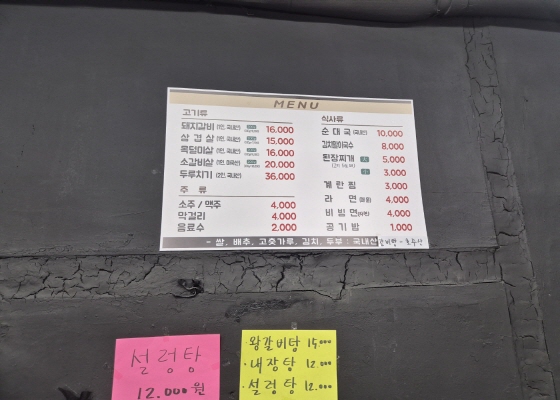 MENU
고기류
돼지갈비 16,000
삼겹살 15,000
목덜미살 16,000
소갈비살 20,000
두루치기 36,000
주 류
소주 / 맥주 4,000
막걸리 4,000
음료수 2,000
식사류
순대국 10,000
김치말이국수 8,000
된장찌개 5,000
3,000
계란찜 3,000
라 면 4,000
비빔면 4,000
공기밥 1,000
- 쌀, 배추, 고춧가루, 김치, 두부 : 국내산
설렁탕
12.000원
왕갈비탕 15.000
·내장탕 12.000
·설렁탕 12.000